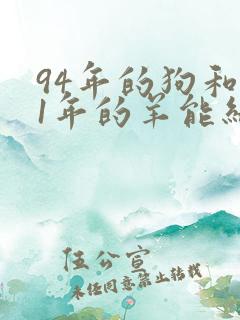 94年的狗和
1年的羊能结
伍公宣
未经同意禁止转载